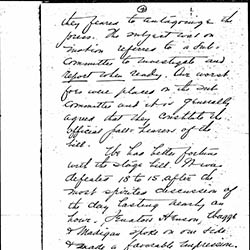 they feared to antagonize the
press. The subject was on
motion referred to a sub.
Committee to investigate and
report when ready. Our worst
foes were placed on the sub
Committee and it is generally
agreed that they constitute the
official pall bearers of the
bill.
We had better fortune
with the stage bill. It was
defeated 18 to 15 after the
most spirited discussion of
the day lasting nearly an
hour. Senators Henson,
& Madigan spoke on our side
& made a favorable impression.